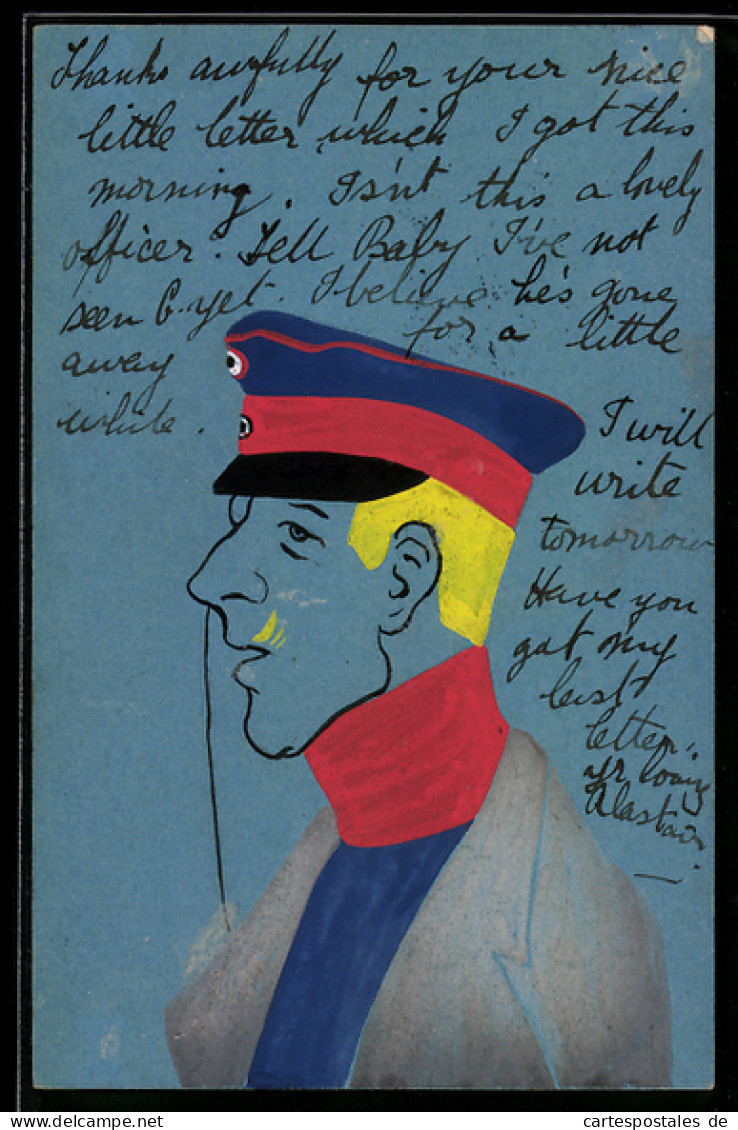 Thanks awfully for your nice
little letter which I got this
morning. Isn't this a lovely
officer? Tell Baby I've not
seen G. yet. I believe he's gone
away for a little
while.
I will
write
tomorrow
Have you
got my
last
letter.
yr loving
Alastair.
cartespostales de